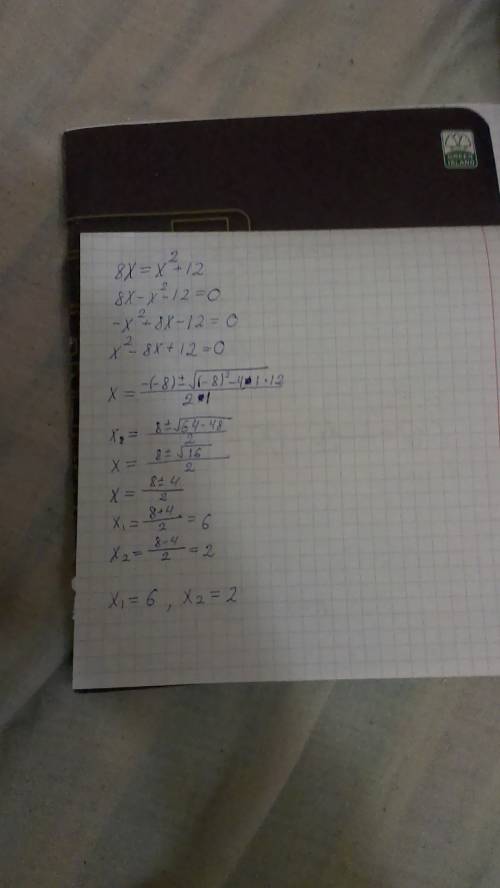 GREEN
ISLAND
8x = x² + 12
8x - x² - 12 = 0
-x² + 8x - 12 = 0
x² - 8x + 12 = 0
x = (-(-8) ± √((-8)² - 4·1·12)) / (2·1)
x₂ = (8 ± √(64 - 48)) / 2
x = (8 ± √16) / 2
x = (8 ± 4) / 2
x₁ = (8 + 4) / 2 = 6
x₂ = (8 - 4) / 2 = 2
x₁ = 6 , x₂ = 2